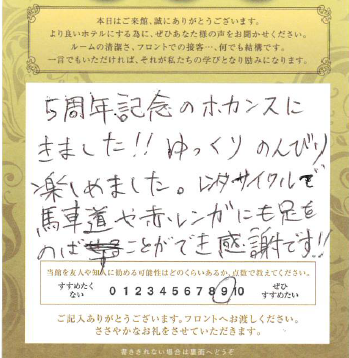 本日はご来館、誠にありがとうございます。
より良いホテルにする為に、ぜひあなた様の声をお聞かせください。
ルームの清潔さ、フロントでの接客…、何でも結構です。
一言でもいただければ、それが私たちの学びとなり励みになります。
5周年記念のホカンスに
きました!! ゆっくり のんびり
楽しめました。レンタサイクルで
馬車道や赤レンガにも足を
のばすことができ感謝です!!
当館を友人や知人に勧める可能性はどのくらいあるか、点数で教えてください。
すすめたく
ない
0 1 2 3 4 5 6 7 8 9 10
ぜひ
すすめたい
ご記入ありがとうございます。フロントへお渡しください。
ささやかなお礼をさせていただきます。
書ききれない場合は裏面へどうぞ